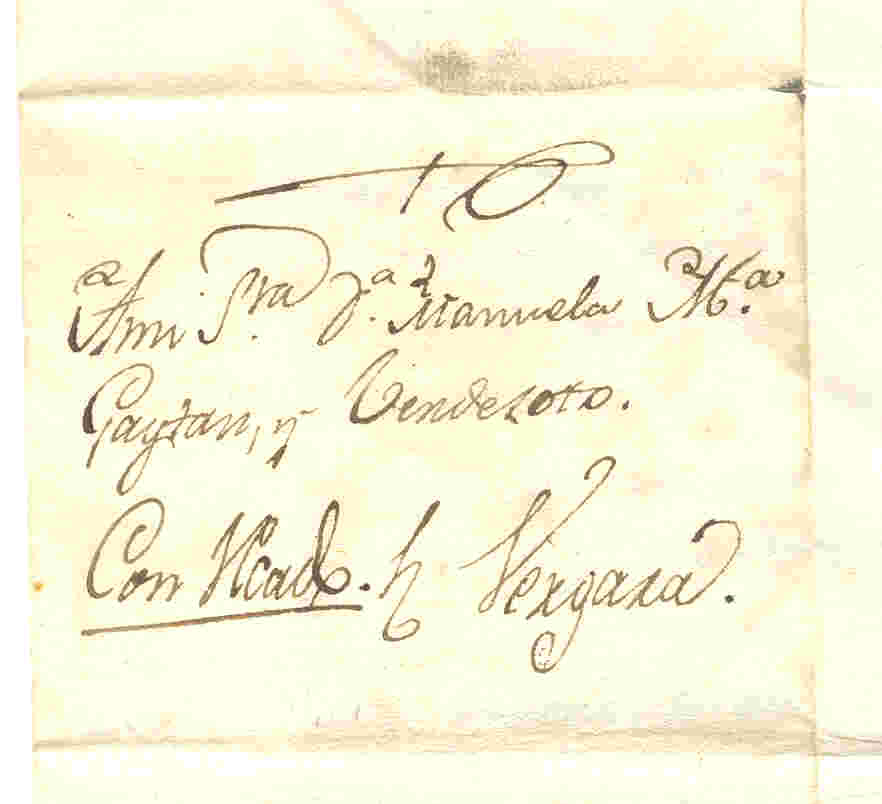 A mi S.ra D.a Manuela M.a
Gaytan, y Vendesoto.
Con Read. Vergara.